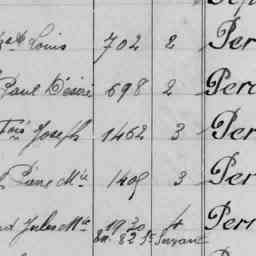 Louis 702 2 Per
Paul Désiré 698 2 Per
Fois Joseph 1462 3 Per
Pierre Mie 1409 3 Per
Jules Me 1920 4 Per
82 St Suzanne